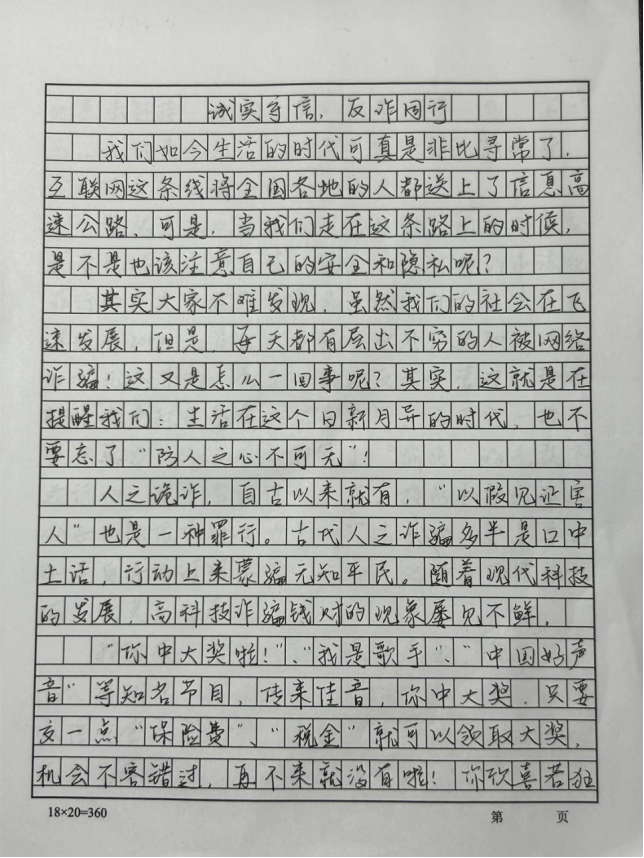 诚实守信，反诈同行
我们如今生活的时代可真是非比寻常了，
互联网这条线将全国各地的人都送上了信息高
速公路，可是，当我们走在这条路上的时候，
是不是也该注意自己的安全和隐私呢？
其实大家不难发现，虽然我们的社会在飞
速发展，但是，每天都有层出不穷的人被网络
诈骗！这又是怎么一回事呢？其实，这就是在
提醒我们：生活在这个日新月异的时代，也不
要忘了“防人之心不可无”！
人之诡诈，自古以来就有，“以假见证害
人”也是一种罪行。古代人之诈骗多半是口中
土话，行动上来蒙骗无知平民。随着现代科技
的发展，高科技诈骗钱财的现象屡见不鲜，
“你中大奖啦！”、“我是歌手”、“中国好声
音”等知名节目，传来佳音，你中大奖，只要
交一点“保险费”、“税金”就可以领取大奖，
机会不容错过，再不来就没有啦！你欣喜若狂
18×20=360
第 页